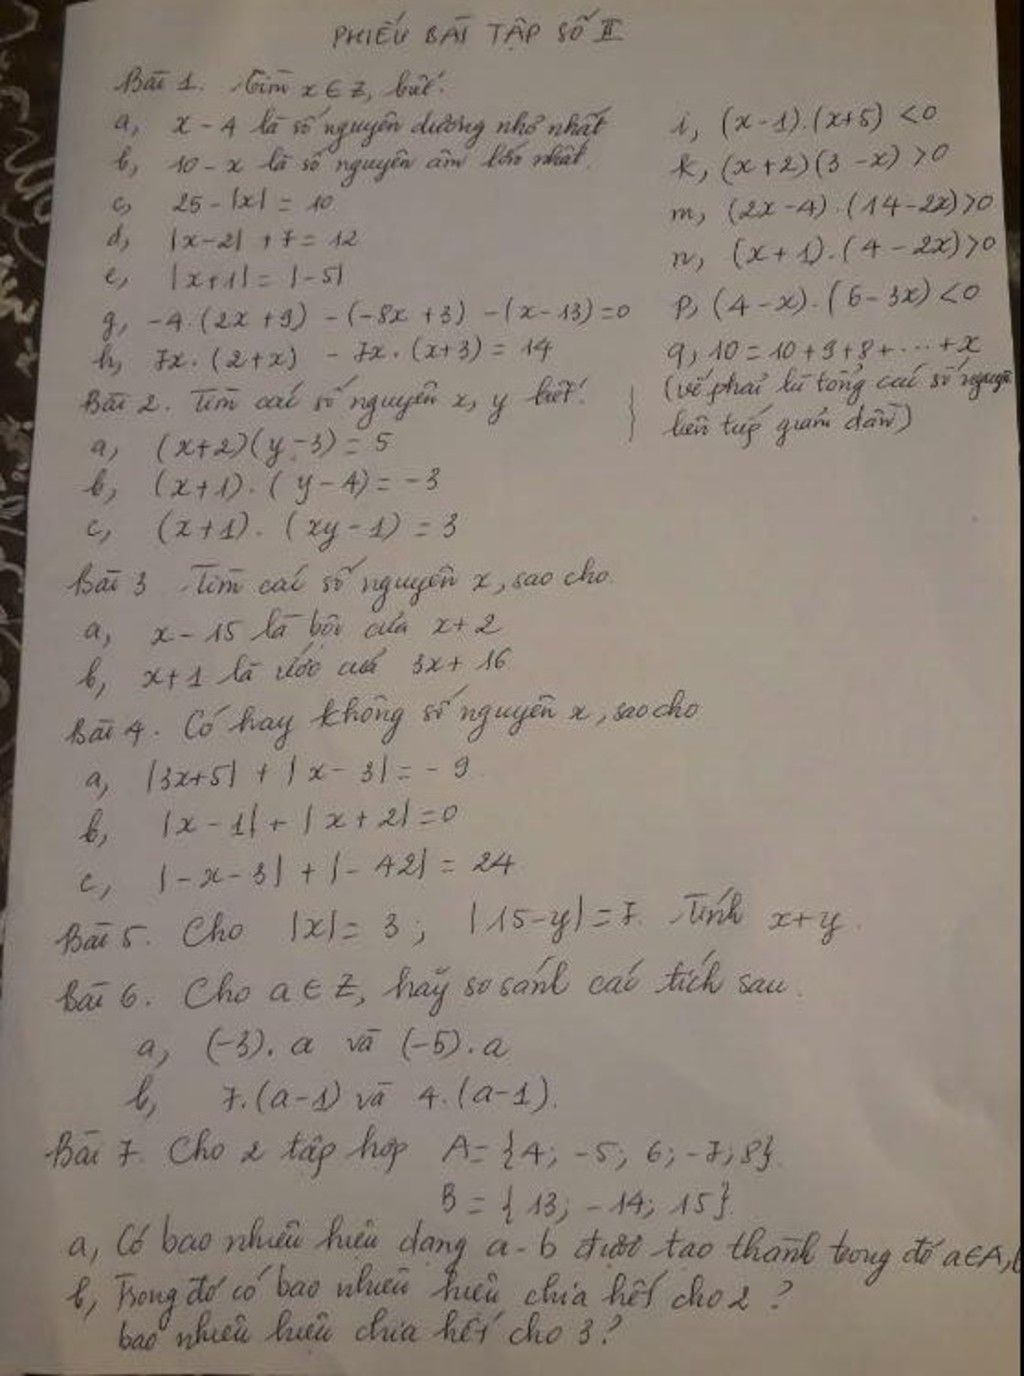 PHIẾU BÀI TẬP SỐ II
Bài 1. Tìm x ∈ Z, biết:
a, x - 4 là số nguyên dương nhỏ nhất
b, 10 - x là số nguyên âm lớn nhất.
c, 25 - |x| = 10
d, |x - 2| + 7 = 12
e, |x + 1| = |-5|
g, -4.(2x + 9) - (-8x + 3) - (x - 13) = 0
h, 7x.(2 + x) - 7x.(x + 3) = 14
i, (x - 1).(x + 5) < 0
k, (x + 2)(3 - x) > 0
m, (2x - 4).(14 - 2x) > 0
n, (x + 1).(4 - 2x) > 0
p, (4 - x).(6 - 3x) < 0
q, 10 = 10 + 9 + 8 + ... + x
(vế phải là tổng các số nguyên
liên tiếp giảm dần)
Bài 2. Tìm các số nguyên x, y biết:
a, (x + 2)(y - 3) = 5
b, (x + 1).(y - 4) = -3
c, (x + 1).(xy - 1) = 3
Bài 3 Tìm các số nguyên x, sao cho.
a, x - 15 là bội của x + 2
b, x + 1 là ước của 3x + 16
Bài 4. Có hay không số nguyên x, sao cho
a, |3x + 5| + |x - 3| = -9
b, |x - 1| + |x + 2| = 0
c, |-x - 3| + |-42| = 24
Bài 5. Cho |x| = 3; |15 - y| = 7. Tính x + y.
Bài 6. Cho a ∈ Z, hãy so sánh các tích sau.
a, (-3).a và (-5).a
b, 7.(a - 1) và 4.(a - 1).
Bài 7. Cho 2 tập hợp A = {4; -5; 6; -7; 8}.
B = {13; -14; 15}.
a, Có bao nhiêu hiệu dạng a - b được tạo thành trong đó a ∈ A,
b, Trong đó có bao nhiêu hiệu chia hết cho 2?
bao nhiêu hiệu chia hết cho 3?